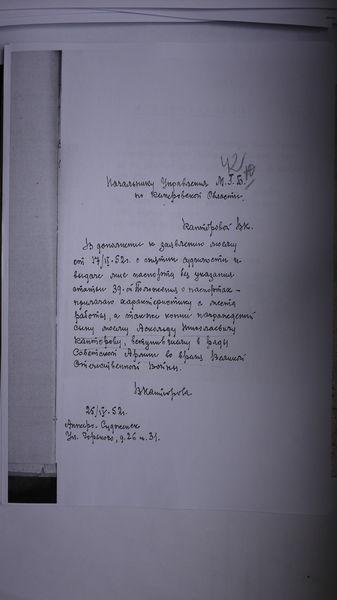 42/10
Начальнику Управления М.Г.Б.
по Кемеровской Области.
Канторовой В.К.
В дополнение к заявлению моему
от 17/IV-52г. о снятии судимости и
выдаче мне паспорта без указания
статьи 39-й Положения о паспортах -
прилагаю характеристику с места
работы, а также копии награждений
сыну моему Аскольду Николаевичу
Канторову, вступившему в ряды
Советской Армии во время Великой
Отечественной Войны.
ВКанторова
25/IV-52г.
Анжеро-Судженск
Ул. Горького, д. 26 к. 31.